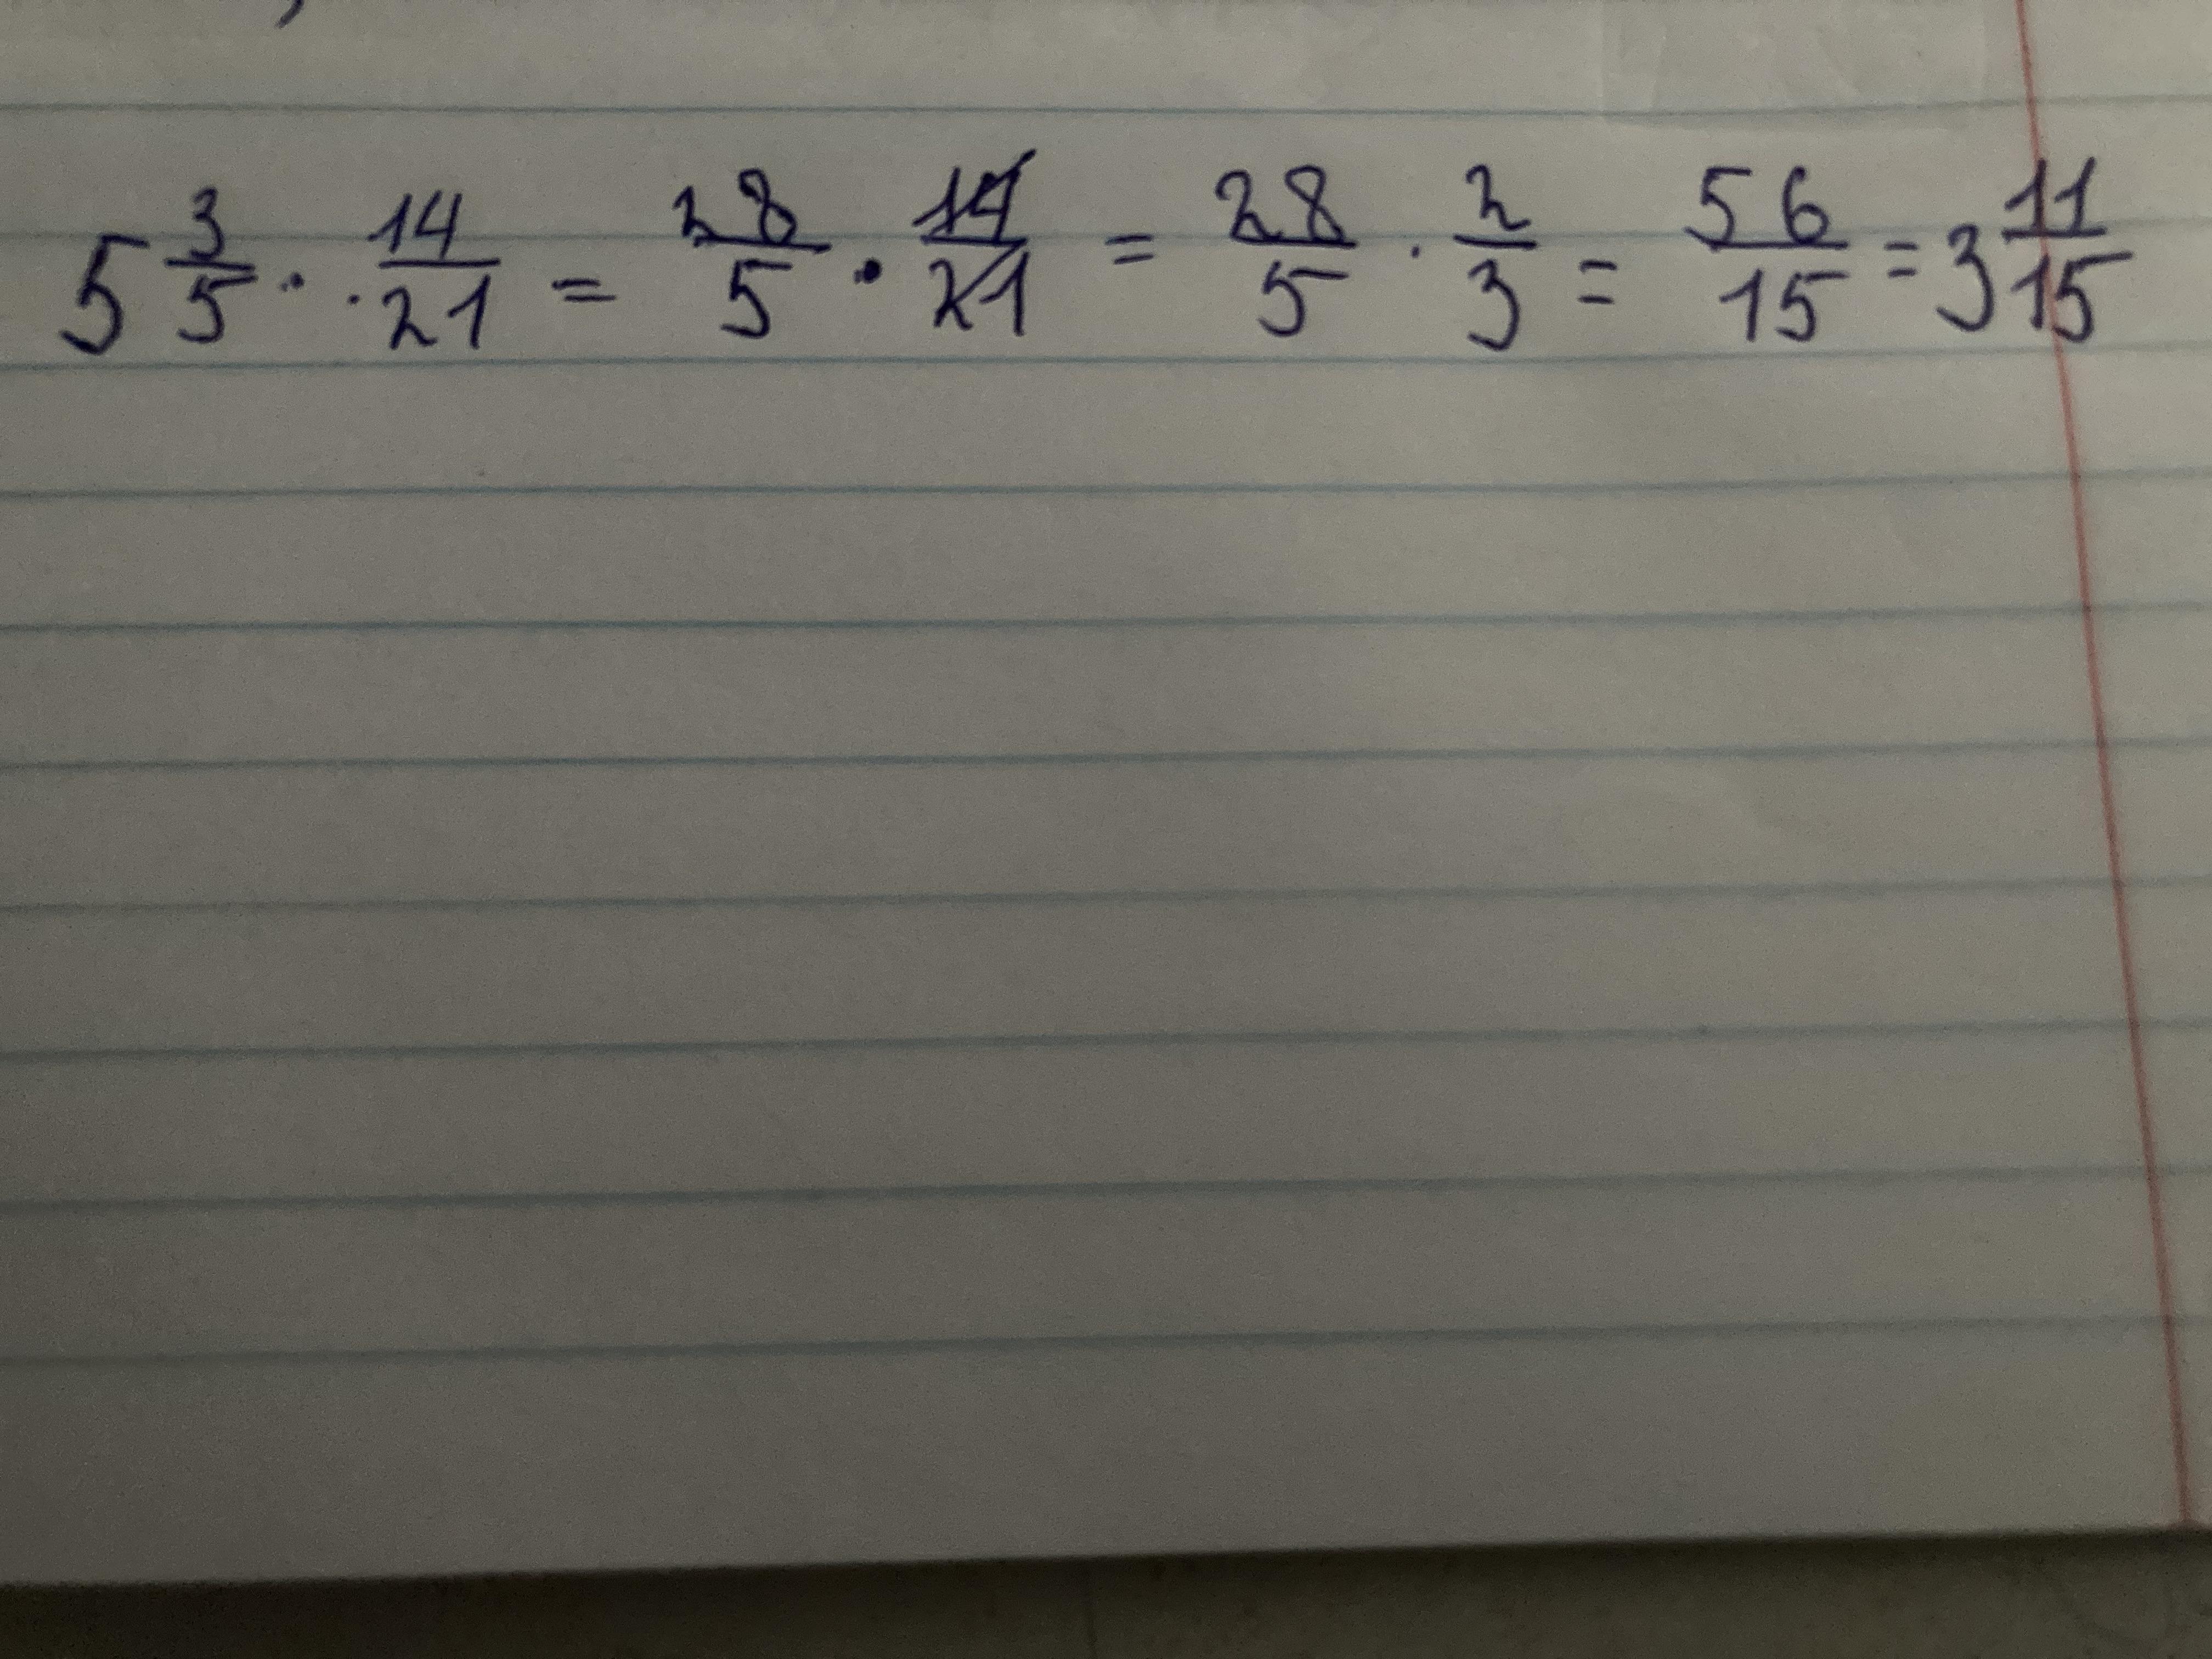 5 3/5 · 14/21 = 28/5 · 14/21 = 28/5 · 2/3 = 56/15 = 3 11/15